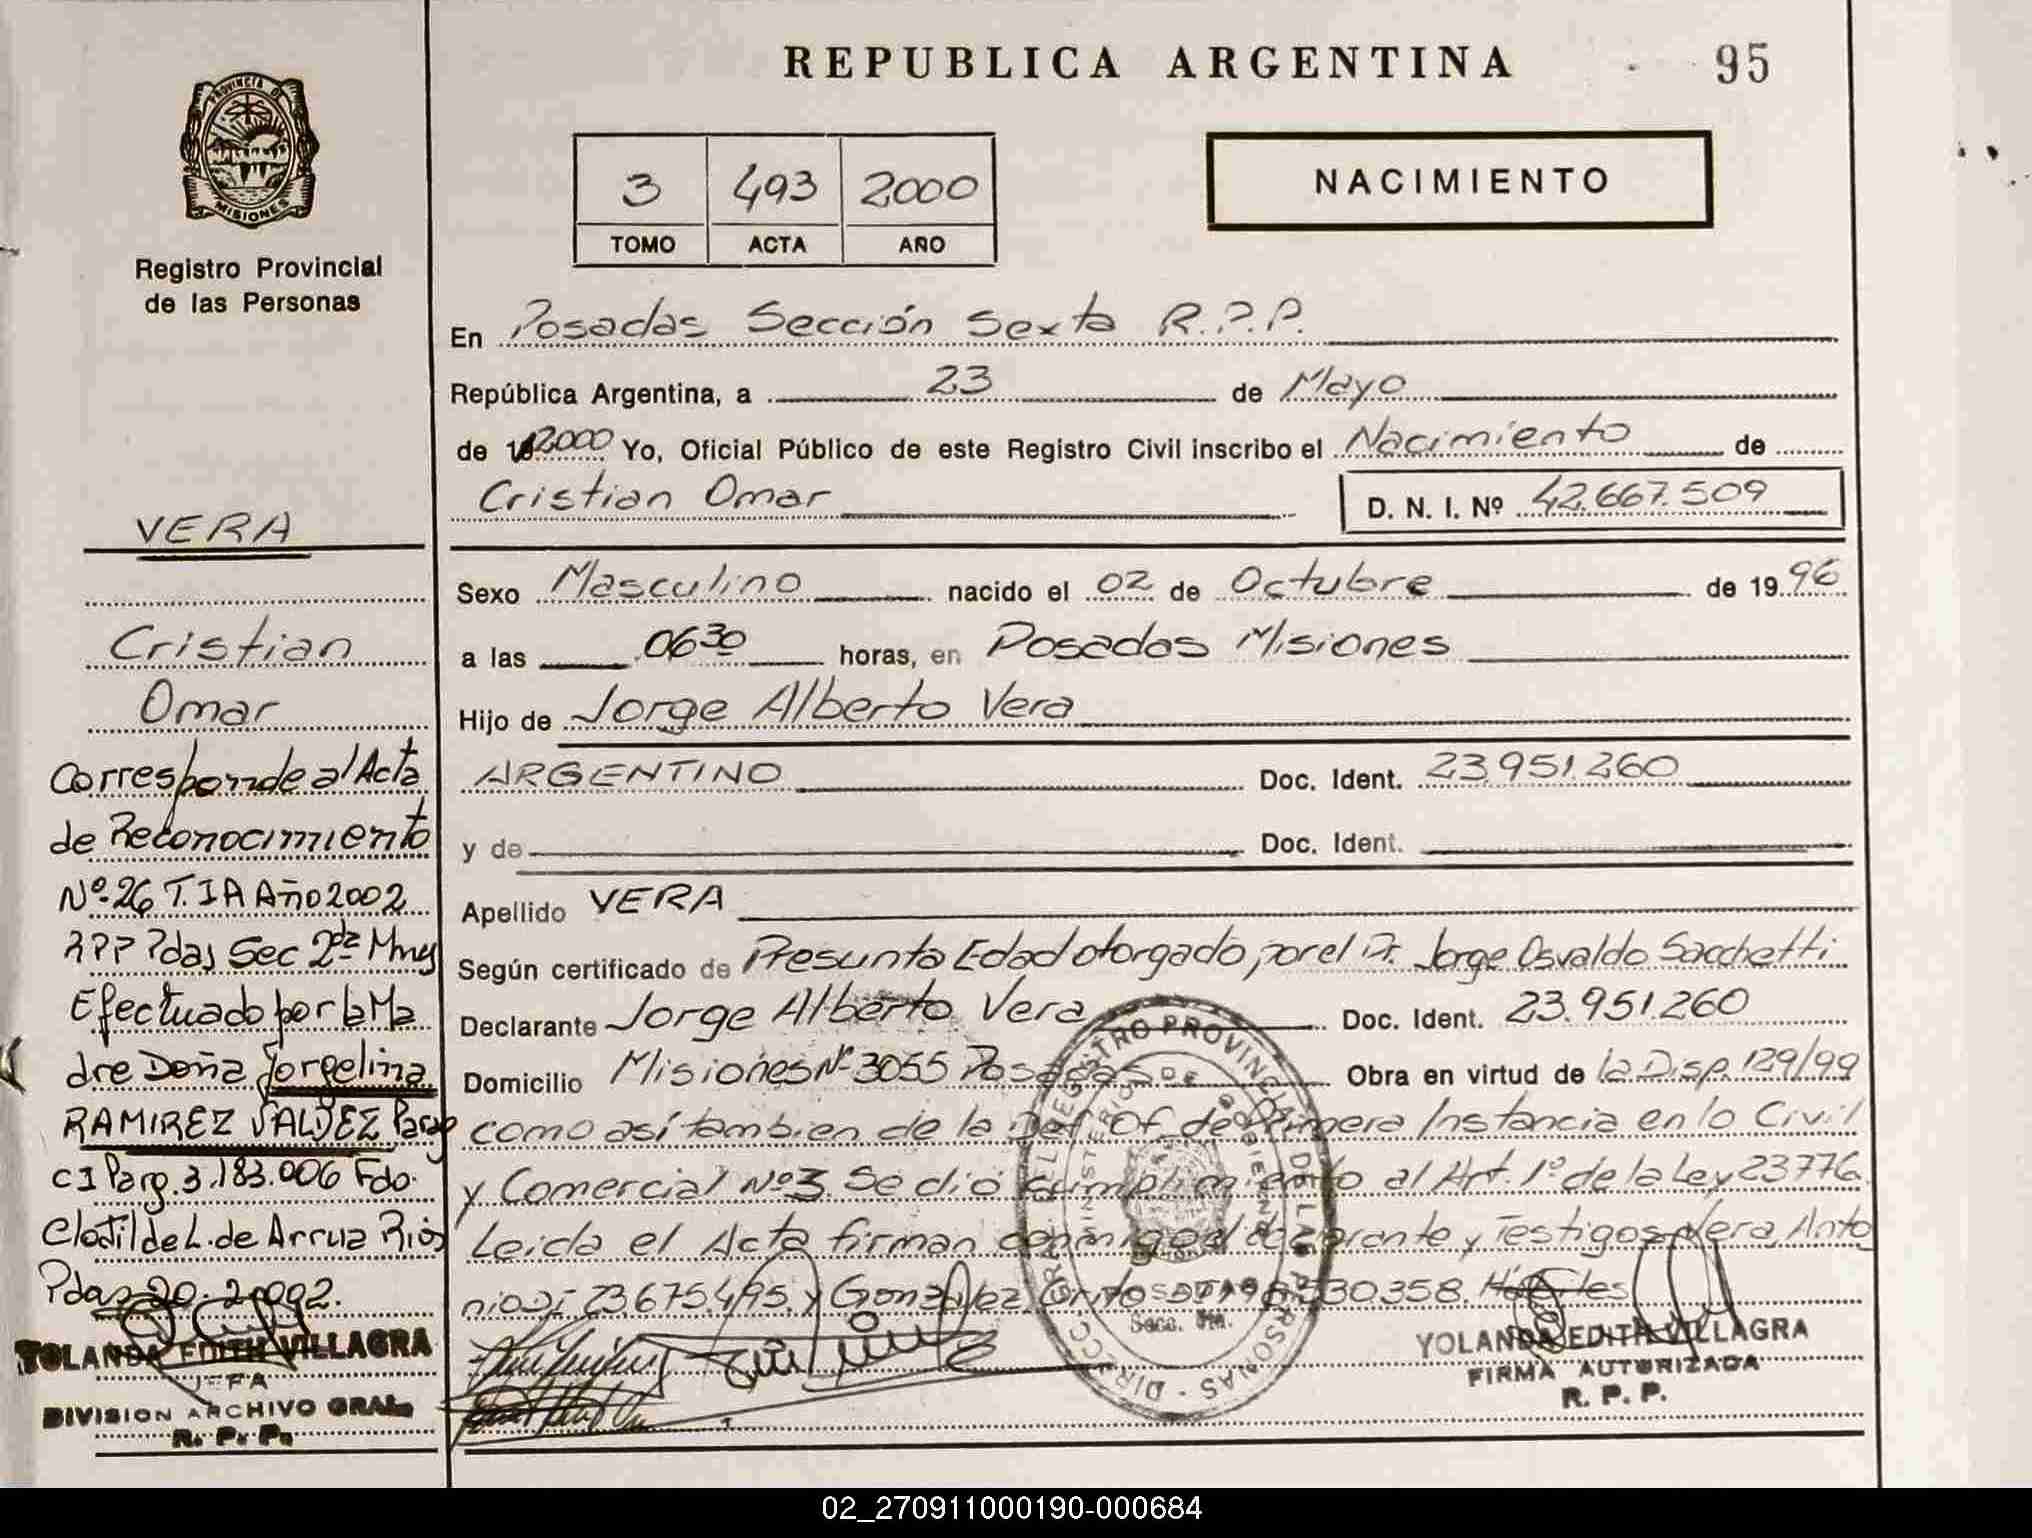 REPUBLICA ARGENTINA
95
PROVINCIA DE
MISIONES
Registro Provincial
de las Personas
3 493 2000
TOMO ACTA AÑO
NACIMIENTO
En Posadas Sección Sexta R.P.P.
República Argentina, a 23 de Mayo
de 2000 Yo, Oficial Público de este Registro Civil inscribo el Nacimiento de
Cristian Omar D. N. I. Nº 42.667.509
Sexo Masculino nacido el 02 de Octubre de 1996
a las 06 30 horas, en Posadas Misiones
Hijo de Jorge Alberto Vera
ARGENTINO Doc. Ident. 23.951.260
y de Doc. Ident.
Apellido VERA
Según certificado de Presunta Edad otorgado por el Dr. Jorge Osvaldo Sacchetti
Declarante Jorge Alberto Vera Doc. Ident. 23.951.260
Domicilio Misiones Nº 3055 Posadas Obra en virtud de la Disp. 129/99
como así tambien de la Def. Of. de Primera Instancia en lo Civil
y Comercial Nº 3. Se dió cumplimiento al Art. 1º de la Ley 23776
Leida el Acta firman conmigo el declarante y Testigos Vera, Anto
nio 23.675.495 y Gonzalez 530.358.
YOLANDA EDITH VILLAGRA
FIRMA AUTORIZADA
R. P. P.
VERA
Cristian
Omar
Corresponde al Acta
de Reconocimiento
Nº 26 T. I A Año 2002
RPP Pdas Sec 2da Mnes
Efectuado por la Ma
dre Doña Jorgelina
RAMIREZ VALDEZ Parag
CI Parg. 3.183.006 Fdo.
Clotilde L. de Arrua Rios
Pdas 20
YOLANDA EDITH VILLAGRA
JEFA
DIVISION ARCHIVO GRAL.
R. P. P.
02_270911000190-000684